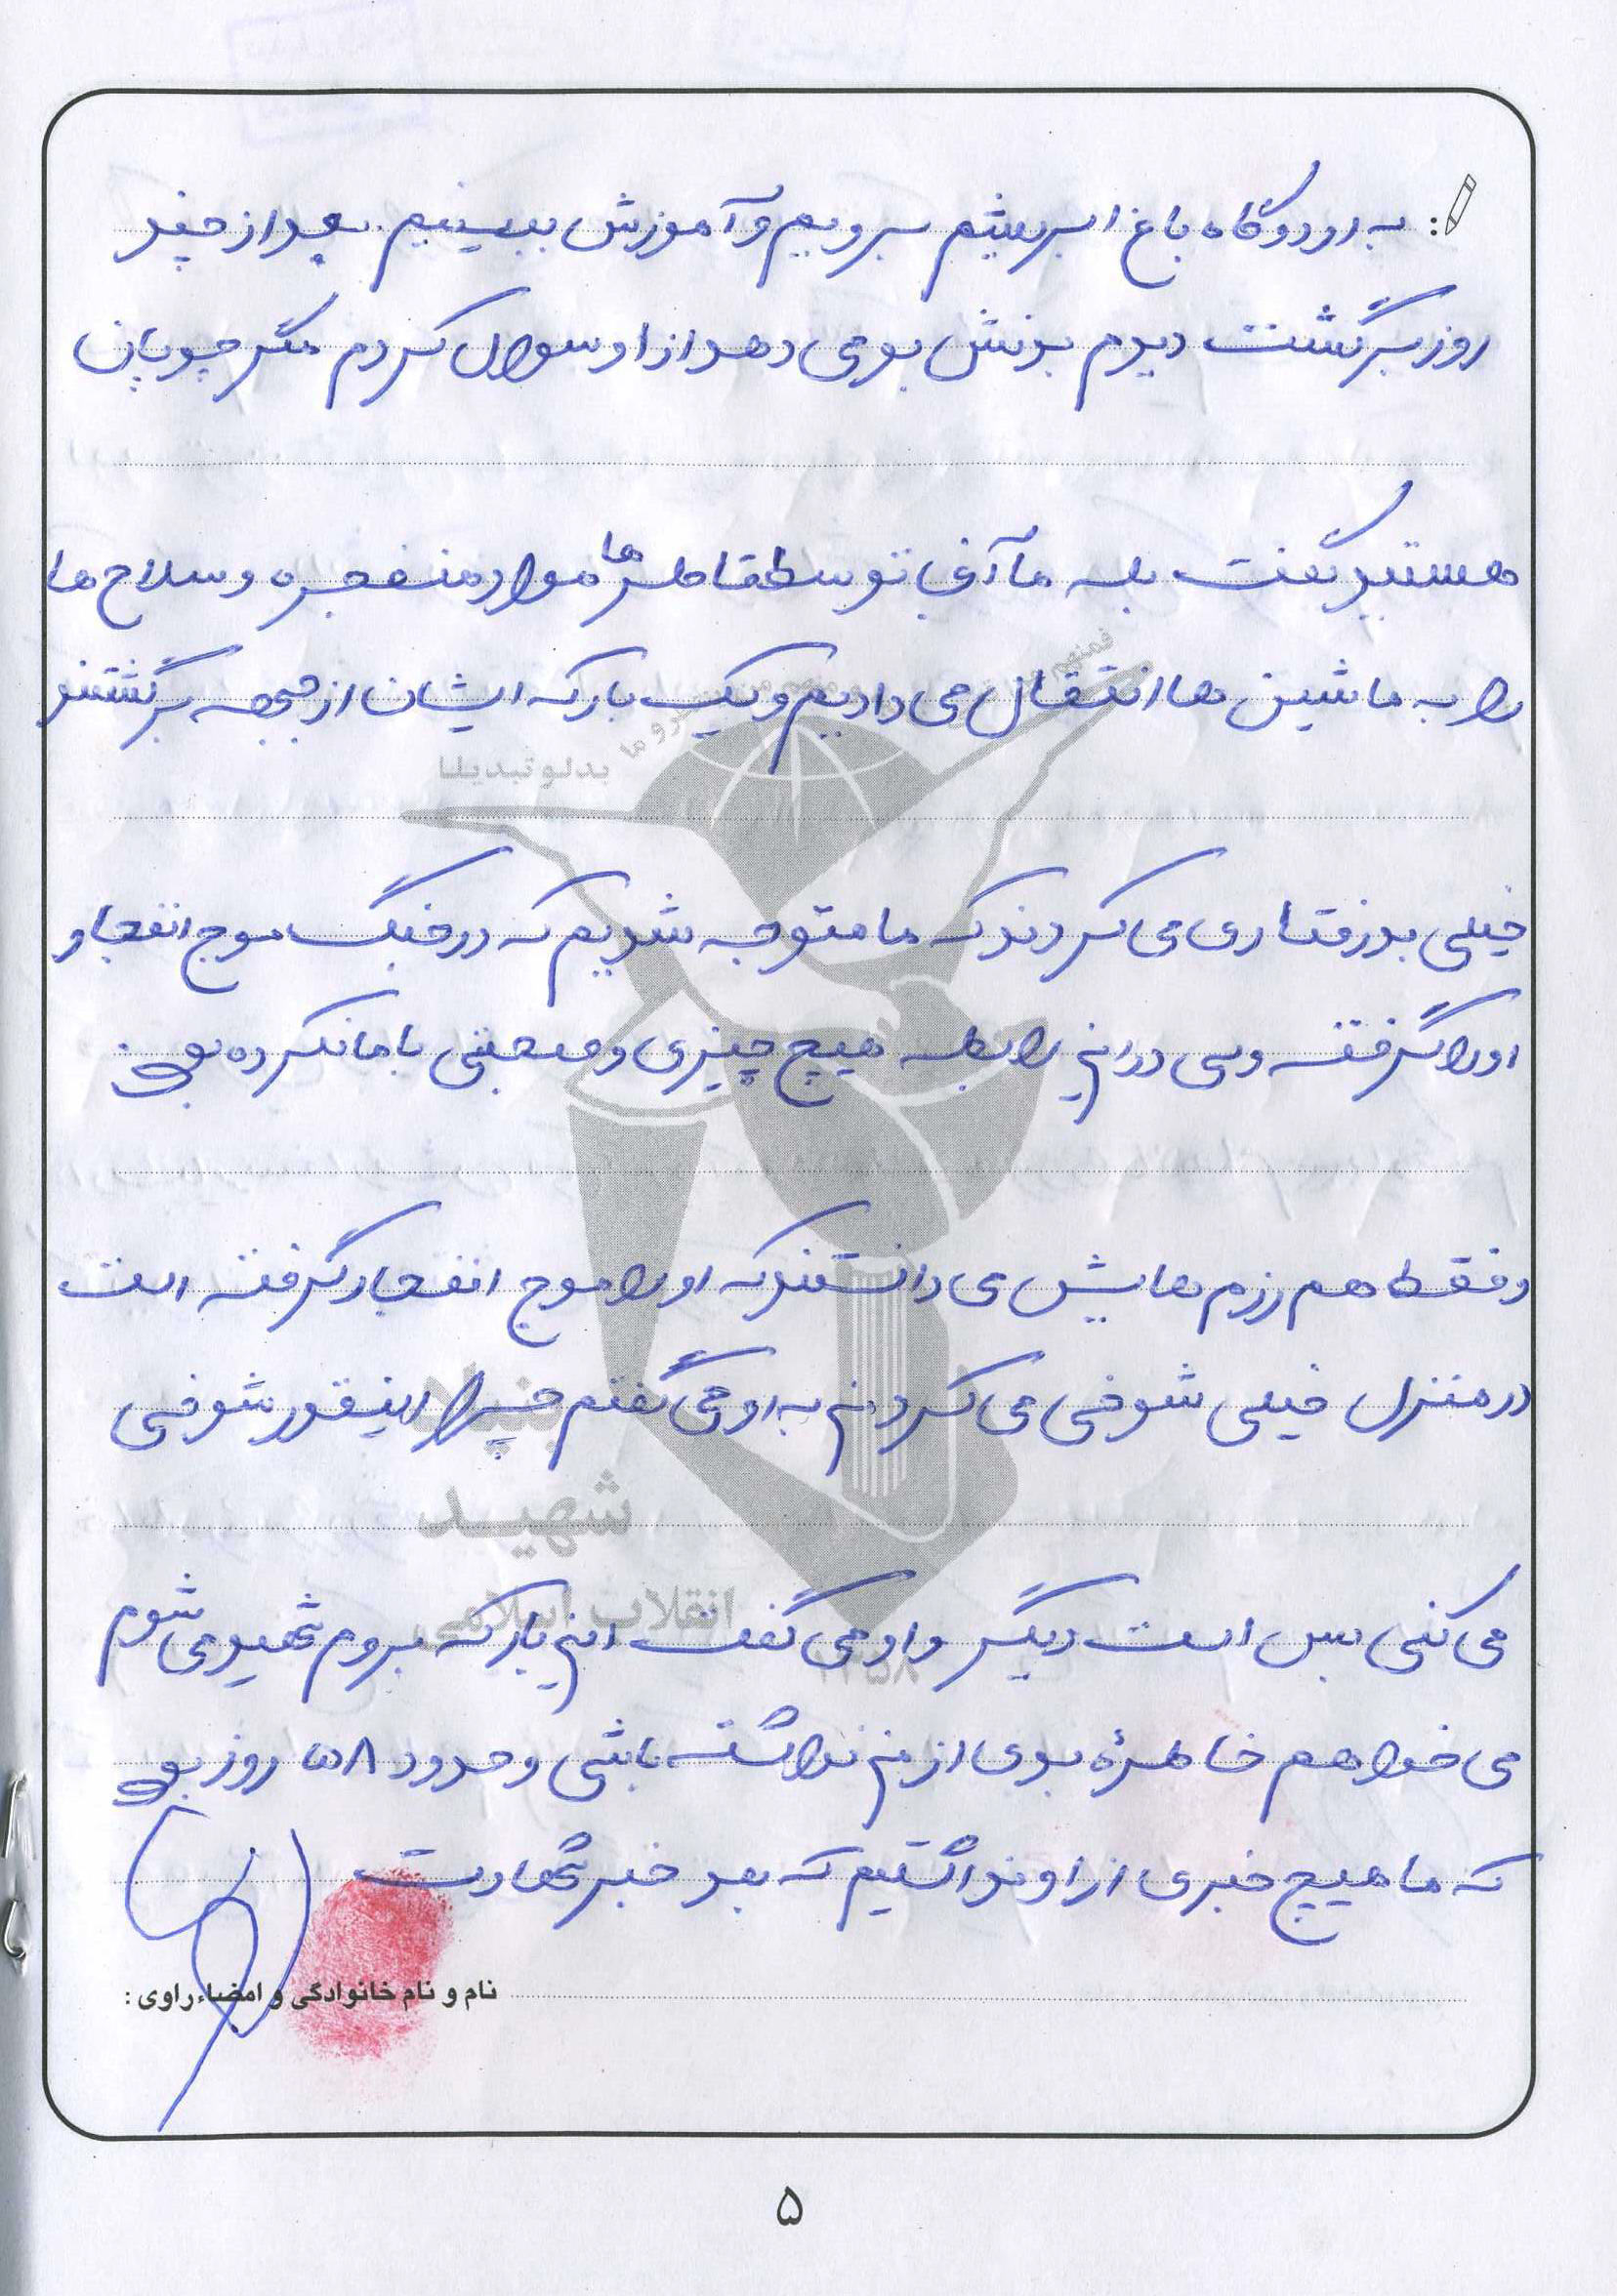 : به اردوگاه باغ ابریشم برویم و آموزش ببینیم. بعد از چند
روز برگشت دیدم بدنش بو می دهد از او سوال کردم مگر چوپان
هستید گفت بله ما آنجا توسط قاطرها مواد منفجره و سلاح ها
را به ماشین ها انتقال می دادیم و یک بار که ایشان از جبهه برگشتند
خیلی بدرفتاری می کردند که ما متوجه شدیم که در جنگ موج انفجار
او را گرفته ولی در این رابطه هیچ چیزی و صحبتی با ما نکرده بود.
و فقط هم رزم هایش می دانستند که او را موج انفجار گرفته است
در منزل خیلی شوخی می کرد من به او می گفتم چرا اینقدر شوخی
می کنی بس است دیگر و او می گفت این بار که بروم شهید می شوم
می خواهم خاطرهٔ بدی از من نداشته باشی و حدود ۵۸ روز بود
که ما هیچ خبری از او نداشتیم که بعد خبر شهادت
نام و نام خانوادگی و امضاء راوی :
بدلو تبدیلا
بنیاد
شهید
انقلاب اسلامی
۱۳۵۸
۵